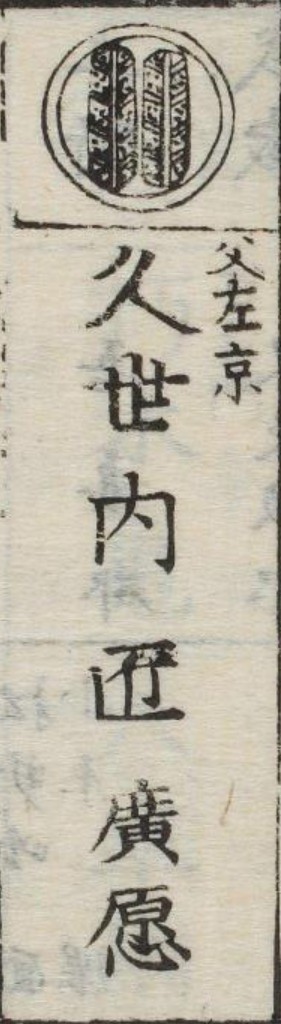 父左京
久世内匠廣愿